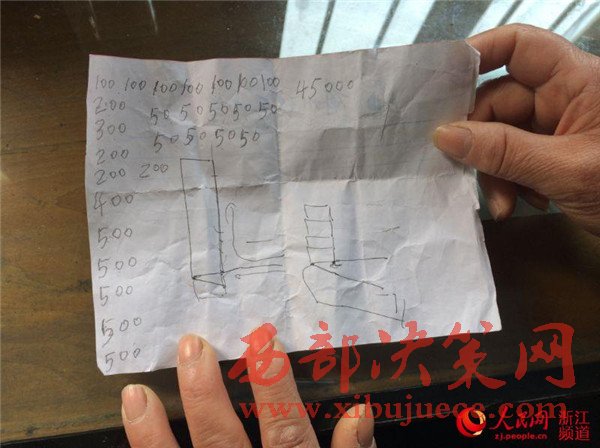 100 100 100 100 100 100 100 45000
200 50 50 50 50 50
300 50 50 50 50
200
200 200
400
500
500
500
500
500
西部决策网
www.xibujuece.com
人民网 浙江频道
zj.people.cn